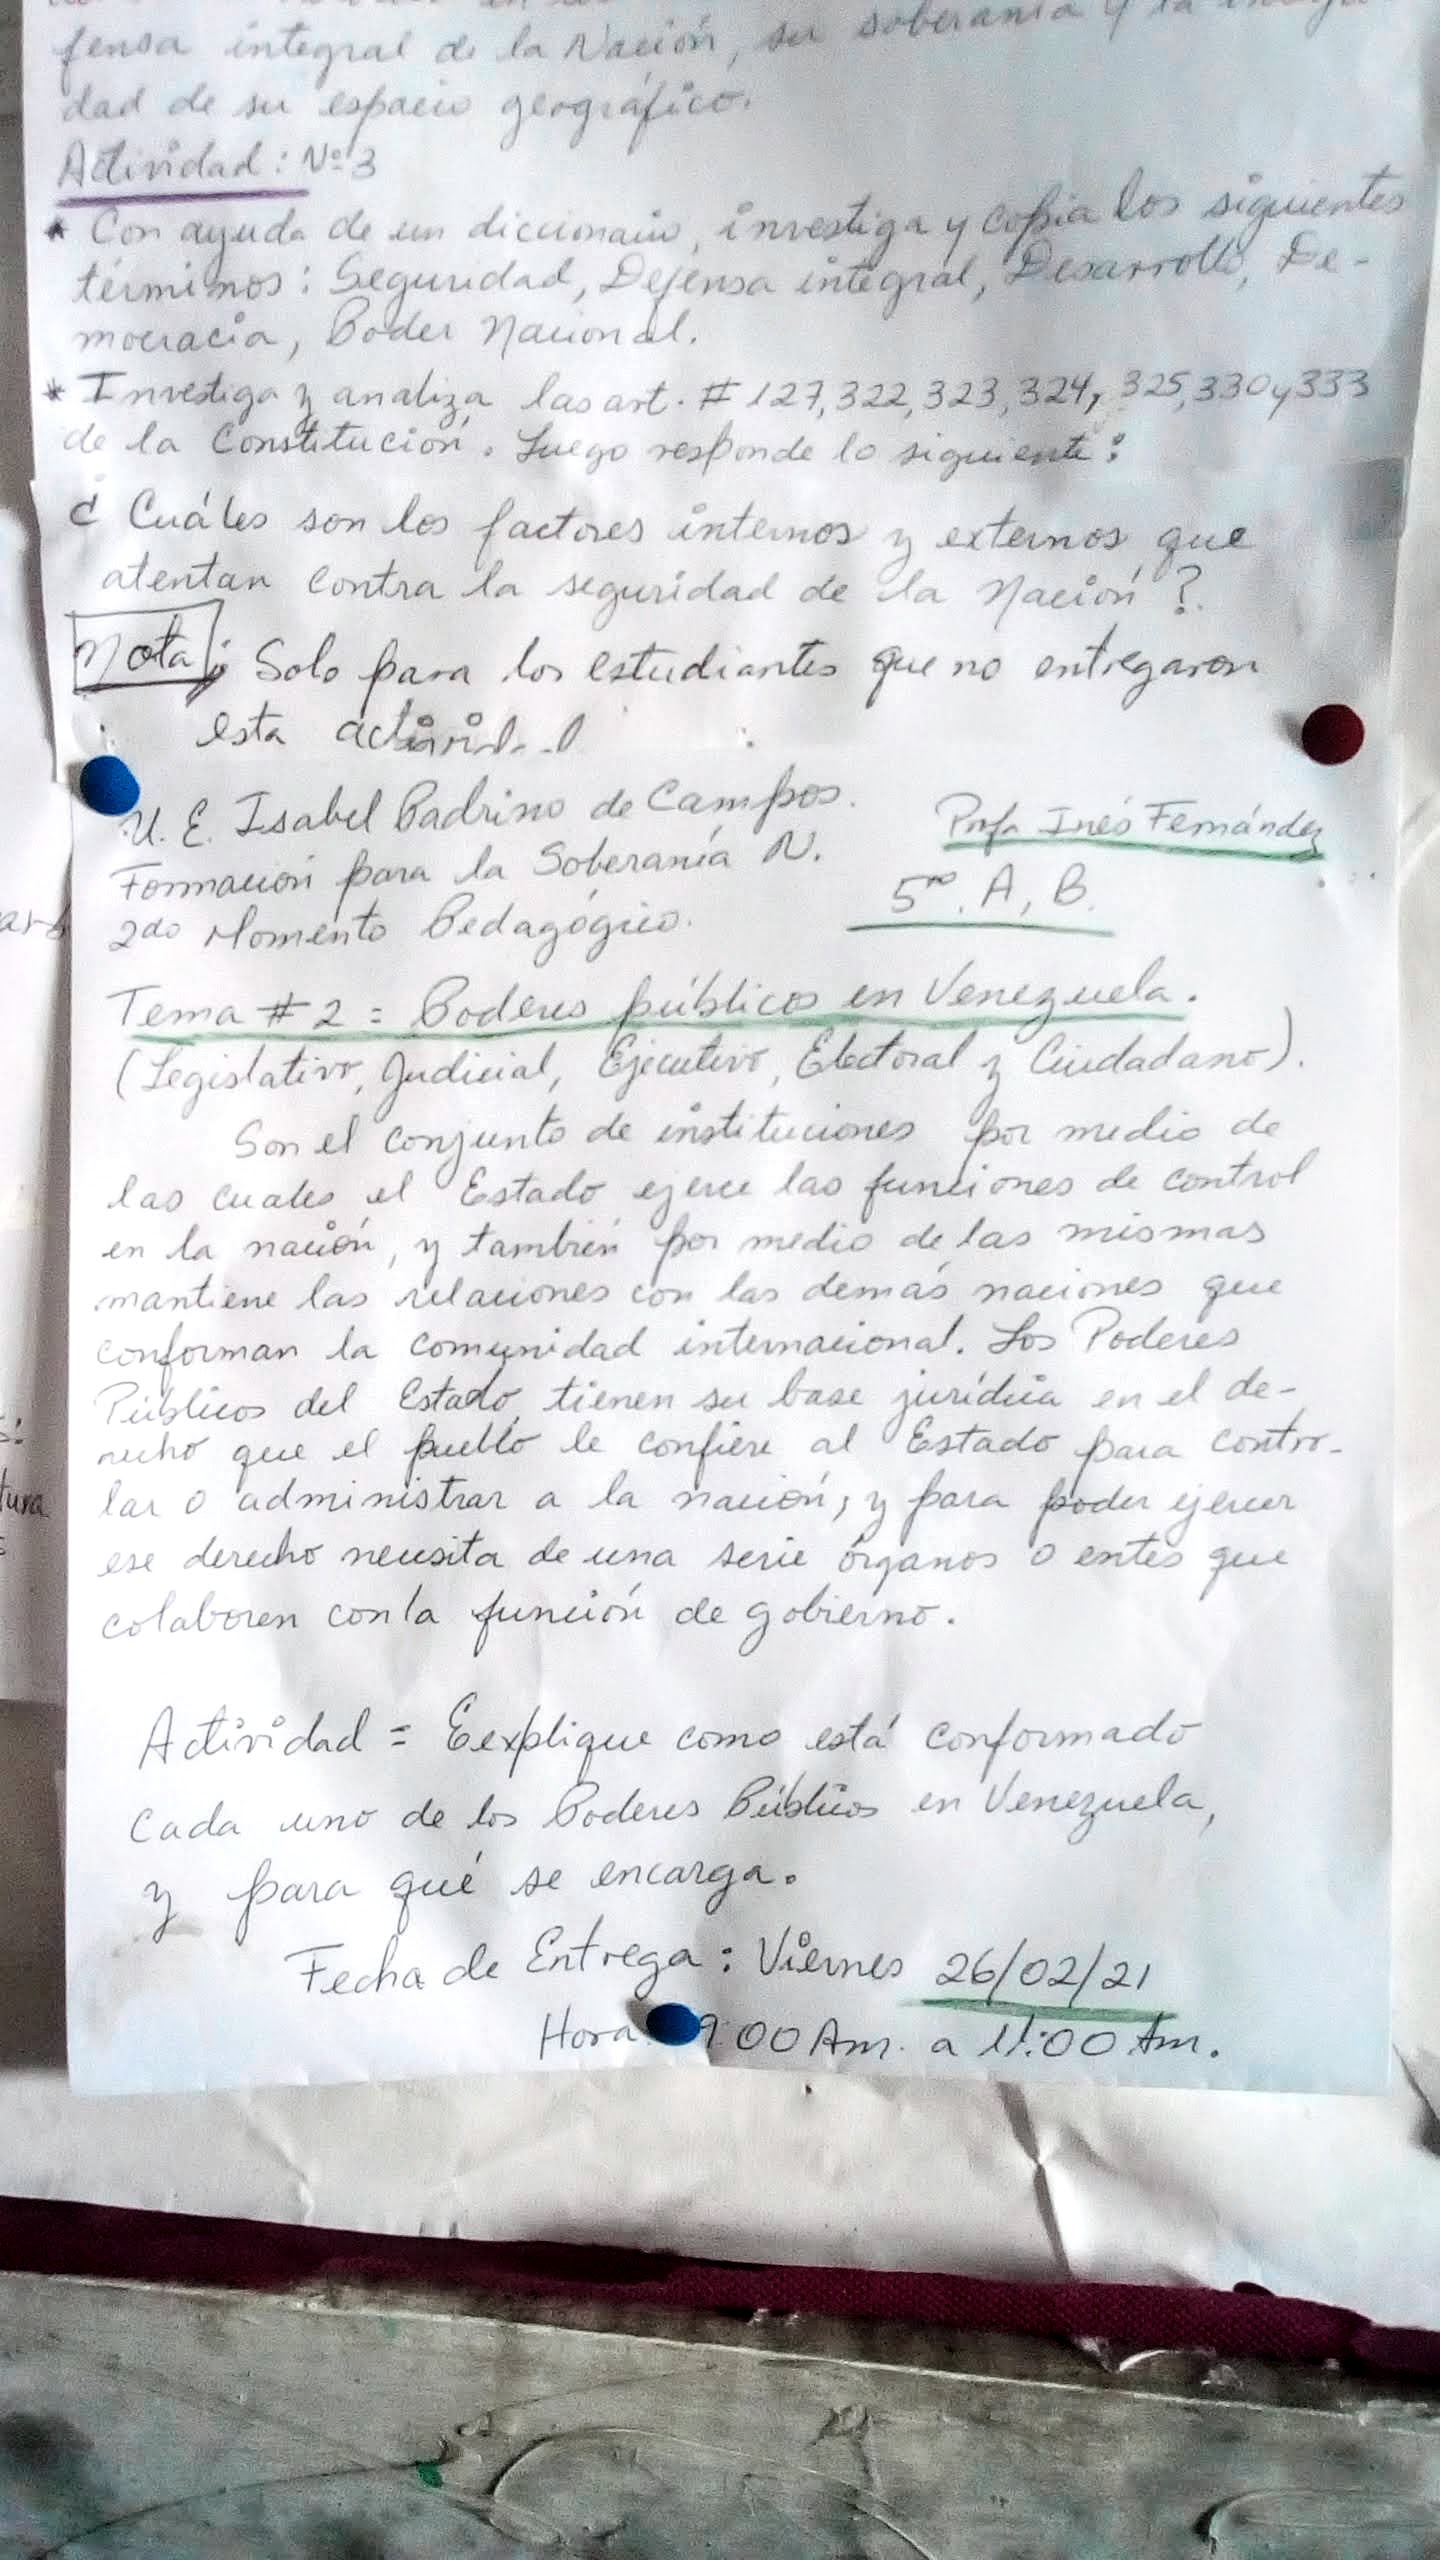 fensa integral de la Nación, su soberanía y la
dad de su espacio geográfico.
Actividad: Nº 3
* Con ayuda de un diccionario, investiga y copia los siguientes
términos: Seguridad, Defensa integral, Desarrollo, De-
mocracia, Poder Nacional.
* Investiga y analiza las art. # 127, 322, 323, 324, 325, 330 y 333
de la Constitución. Luego responde lo siguiente:
¿ Cuáles son los factores internos y externos que
atentan contra la seguridad de la Nación?
Nota: Solo para los estudiantes que no entregaron
esta actividad
U. E. Isabel Padrino de Campos.
Profa Inés Fernández
Formación para la Soberanía N.
5to. A, B.
2do Momento Pedagógico.
Tema # 2 = Poderes públicos en Venezuela.
(Legislativo, Judicial, Ejecutivo, Electoral y Ciudadano).
Son el conjunto de instituciones por medio de
las cuales el Estado ejerce las funciones de control
en la nación, y también por medio de las mismas
mantiene las relaciones con las demás naciones que
conforman la comunidad internacional. Los Poderes
Públicos del Estado, tienen su base jurídica en el de-
recho que el pueblo le confiere al Estado para contro-
lar o administrar a la nación; y para poder ejercer
ese derecho necesita de una serie órganos o entes que
colaboren con la función de gobierno.
Actividad = Eexplique como está conformado
cada uno de los Poderes Públicos en Venezuela,
y para qué se encarga.
Fecha de Entrega: Viernes 26/02/21
Hora 9:00 Am. a 11:00 Am.